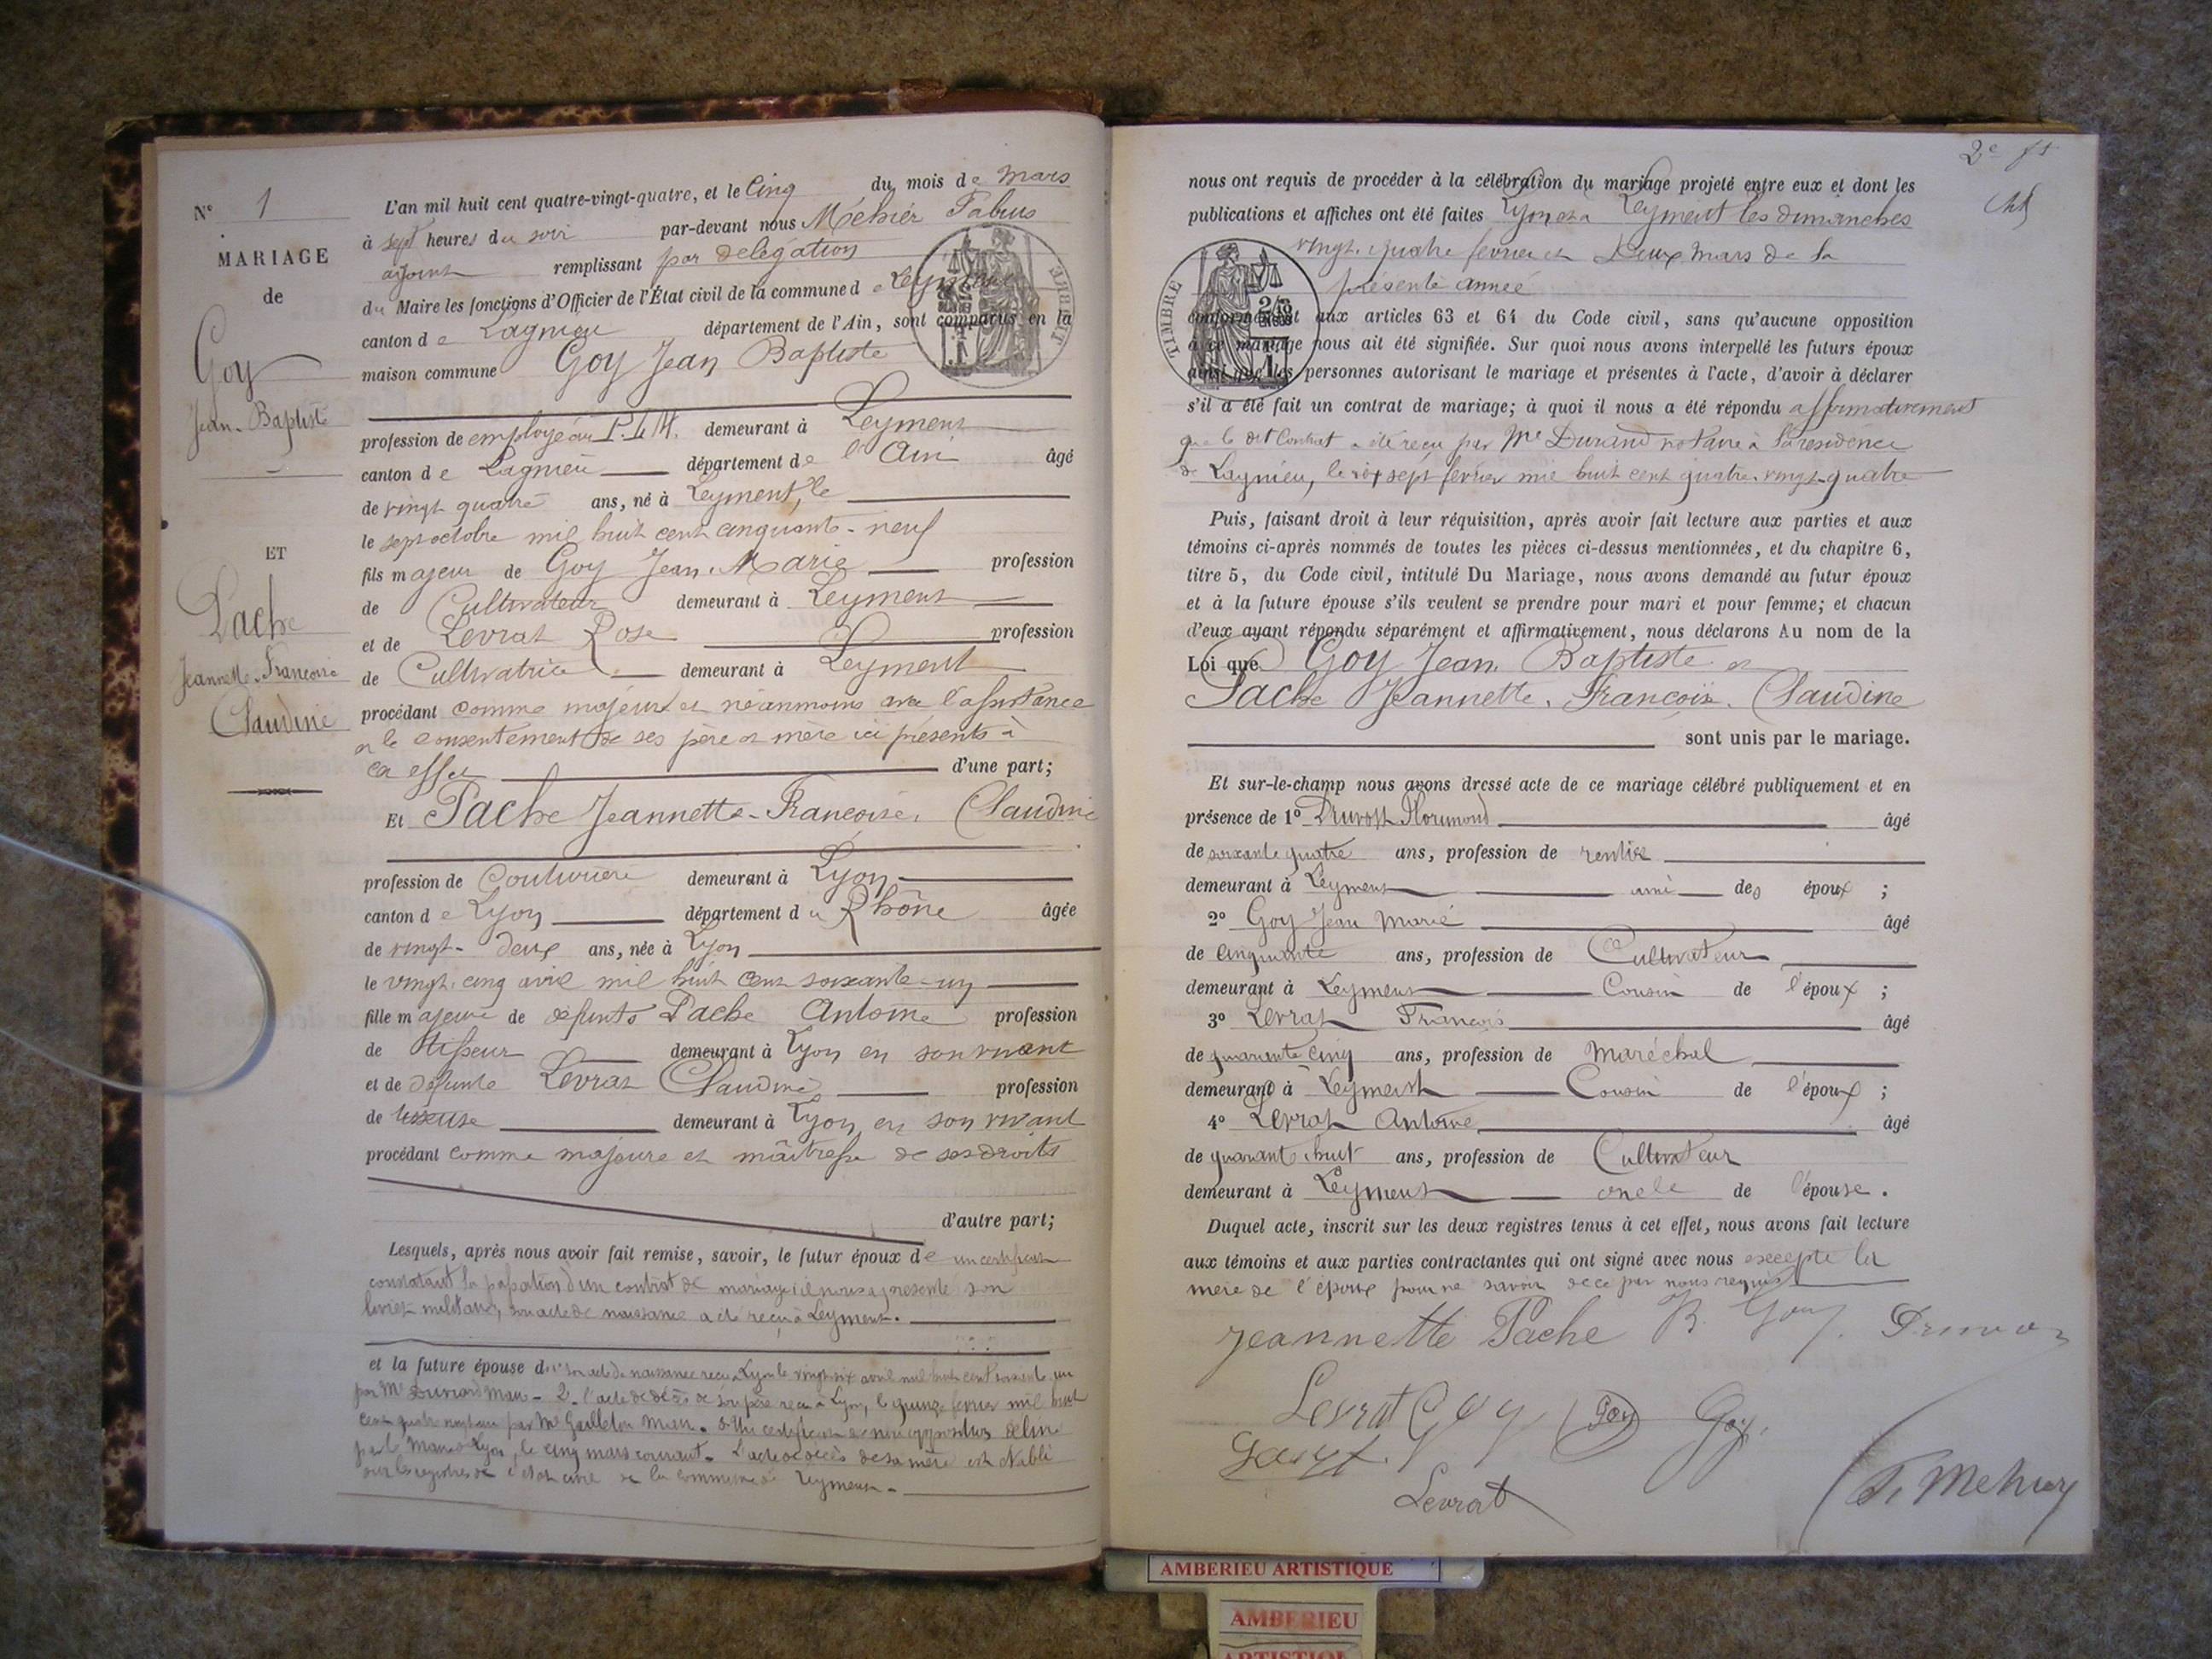 N° 1
MARIAGE
de
Goy
Jean-Baptiste
ET
Pache
Jeannette-Francoise
Claudine
L'an mil huit cent quatre-vingt-quatre, et le Cinq du mois de Mars
à sept heures du soir par-devant nous Méhier Fabius
adjoint remplissant par délégation
du Maire les fonctions d'Officier de l'État civil de la commune de Leyment
canton de Lagnieu département de l'Ain, sont comparus en la
maison commune Goy Jean Baptiste
profession de employé au P.L.M. demeurant à Leyment
canton de Lagnieu département de l'Ain âgé
de vingt quatre ans, né à Leyment, le
le sept octobre mil huit cent cinquante-neuf
fils majeur de Goy Jean-Marie profession
de Cultivateur demeurant à Leyment
et de Levrat Rose profession
de Cultivatrice demeurant à Leyment
procédant comme majeur et néanmoins avec l'assistance
et le consentement de ses père et mère ici présents à
cet effet d'une part;
Et Pache Jeannette-Francoise, Claudine
profession de Couturière demeurant à Lyon
canton de Lyon département du Rhône âgée
de vingt-deux ans, née à Lyon
le vingt-cinq avril mil huit cent soixante-un
fille majeure de défunts Pache Antoine profession
de tisseur demeurant à Lyon en son vivant
et de défunte Levrat Claudine profession
de tisseuse demeurant à Lyon en son vivant
procédant comme majeure et maîtresse de ses droits
d'autre part;
Lesquels, après nous avoir fait remise, savoir, le futur époux de un certificat
constatant la passation d'un contrat de mariage, il nous a présenté son
livret militaire, son acte de naissance a été reçu à Leyment.
et la future épouse de 1° son acte de naissance reçu à Lyon le vingt-six avril mil huit cent soixante-un
par Mr Maire - 2. l'acte de décès de son père reçu à Lyon, le quinze février mil huit
cent quatre vingt par Mr Gailleton Maire. 3. Un certificat de non opposition délivré
par le Maire de Lyon, le cinq mars courant. L'acte de décès de sa mère est établi
sur les registres de l'état civil de la commune de Leyment.
2e ft
nous ont requis de procéder à la célébration du mariage projeté entre eux et dont les
publications et affiches ont été faites Lyon et à Leyment les dimanches
vingt-quatre février et Deux Mars de la
présente année
TIMBRE
conformément aux articles 63 et 64 du Code civil, sans qu'aucune opposition
à ce mariage nous ait été signifiée. Sur quoi nous avons interpellé les futurs époux
ainsi que les personnes autorisant le mariage et présentes à l'acte, d'avoir à déclarer
s'il a été fait un contrat de mariage; à quoi il nous a été répondu affirmativement
que le dit Contrat a été reçu par Me Durand notaire à la résidence
de Lagnieu, le dix sept février mil huit cent quatre-vingt-quatre
Puis, faisant droit à leur réquisition, après avoir fait lecture aux parties et aux
témoins ci-après nommés de toutes les pièces ci-dessus mentionnées, et du chapitre 6,
titre 5, du Code civil, intitulé Du Mariage, nous avons demandé au futur époux
et à la future épouse s'ils veulent se prendre pour mari et pour femme; et chacun
d'eux ayant répondu séparément et affirmativement, nous déclarons Au nom de la
Loi que Goy Jean Baptiste et
Pache Jeannette, Francoise, Claudine
sont unis par le mariage.
Et sur-le-champ nous avons dressé acte de ce mariage célébré publiquement et en
présence de 1° Druvot Florimond âgé
de soixante quatre ans, profession de rentier
demeurant à Leyment ami des époux ;
2° Goy Jean Marie âgé
de Cinquante ans, profession de Cultivateur
demeurant à Leyment Cousin de l'époux ;
3° Levrat Francois âgé
de quarante cinq ans, profession de Maréchal
demeurant à Leyment Cousin de l'époux ;
4° Levrat Antoine âgé
de quarante huit ans, profession de Cultivateur
demeurant à Leyment oncle de l'épouse.
Duquel acte, inscrit sur les deux registres tenus à cet effet, nous avons fait lecture
aux témoins et aux parties contractantes qui ont signé avec nous excepté la
mère de l'époux pour ne savoir de ce par nous requis
Jeannette Pache B. Goy
Levrat Goy Goy Goy
Levrat
F. Mehier
AMBERIEU ARTISTIQUE
AMBERIEU
ARTISTIQUE